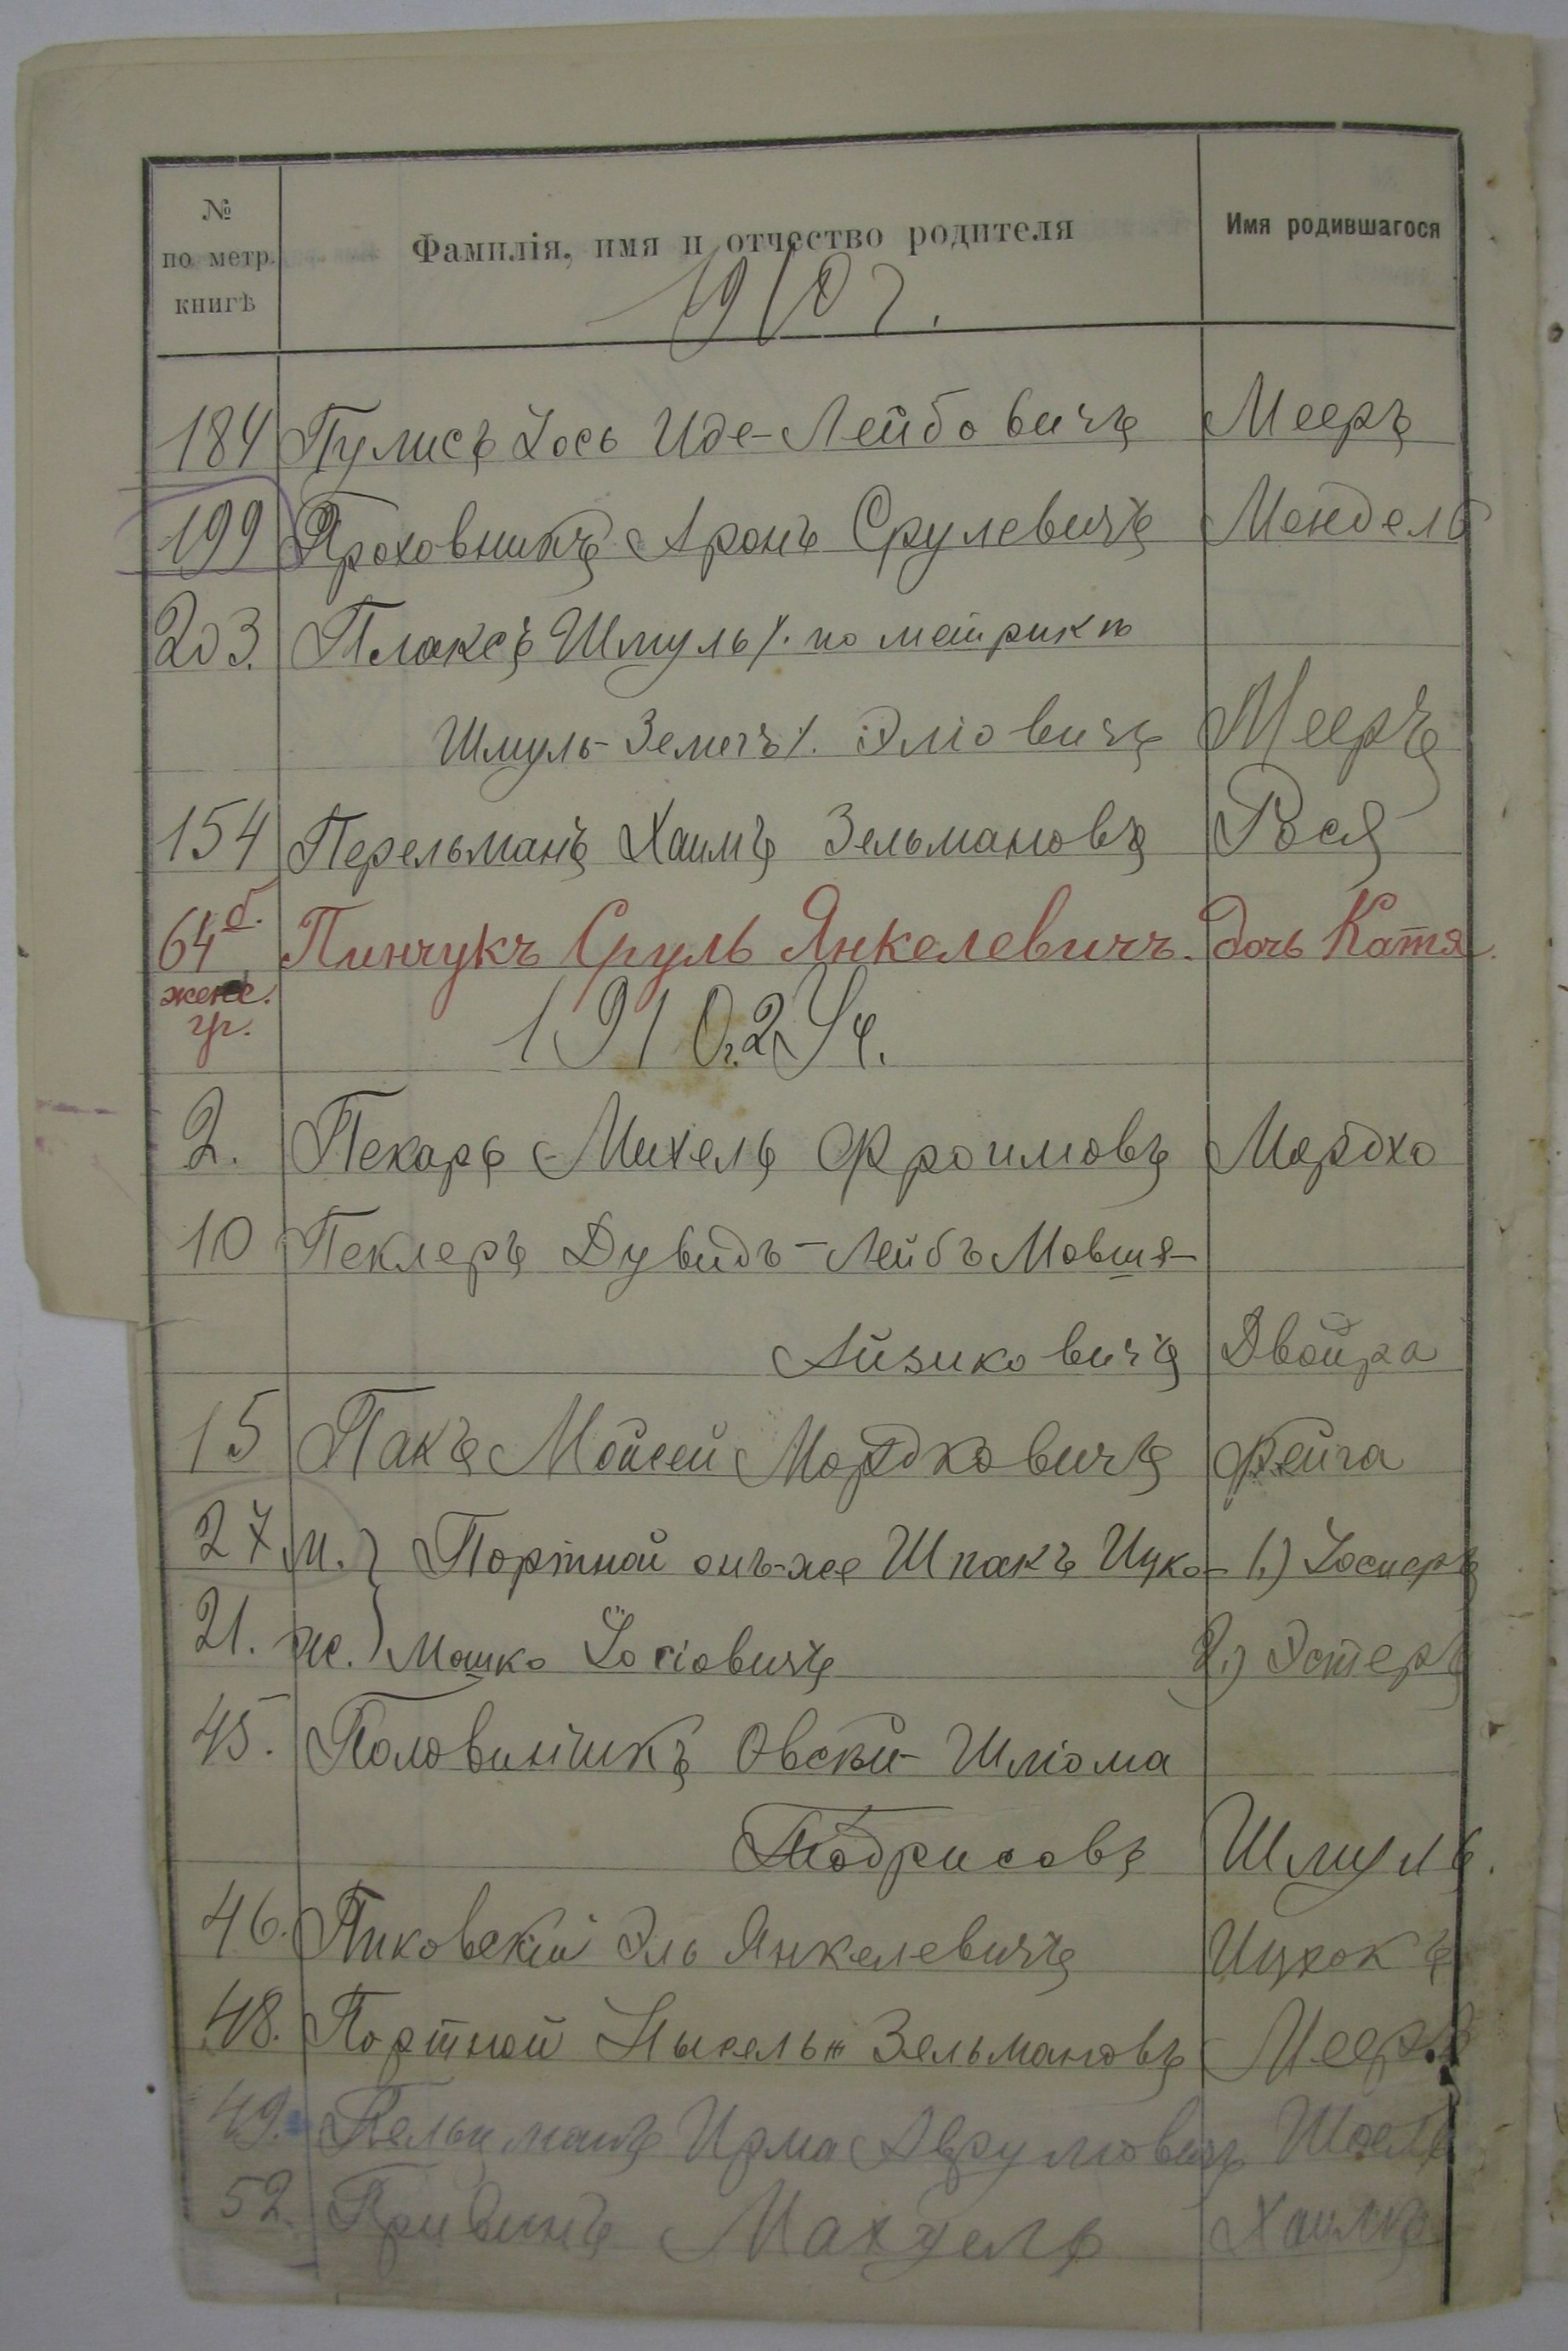 № по метр. книгѣ | Фамилія, имя и отчество родителя | Имя родившагося
1910 г.
184 Пулисъ Іось Иде-Лейбовичъ Мееръ
199 Проховникъ Аронъ Срулевичъ Мендель
203. Плаксъ Шмуль /. по метрикѣ
Шмуль-Земахъ /. Эліовичъ Мееръ
154 Перельманъ Хаимъ Зельмановъ Рося
64 б. Пинчукъ Сруль Янкелевичъ. дочь Катя.
женс.
уг. 1910 г. 2 Уч.
2. Пекарь Михель Фроимовъ Мордхо
10 Пеклеръ Дувидъ-Лейбъ Мовша-
Айзиковичъ Двойра
15 Пакъ Мойсей Мордковичъ Фейга
27 м. } Портной онъ-же Шпакъ Ицко- 1.) Іосиеръ
21. ж. } Мошко Іосіовичъ 2.) Эстеръ
45. Половинчикъ Овсѣй-Шлiома
Тодрисовъ Шмуль.
46. Пиковскій Эль Янкелевичъ Ицхокъ
48. Портной Нысель Зельмановъ Мееръ
49. Ирма Аврумовичъ
52. Хаимъ